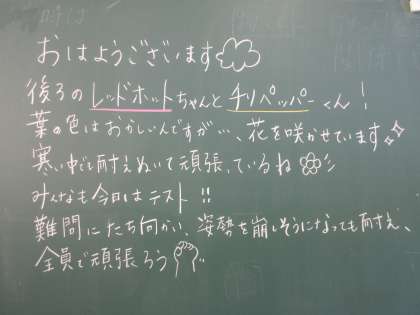 おはようございます
後ろのレッドホットちゃんとチリペッパーくん!
葉の色はおかしいんですが…、花を咲かせています
寒い中でも耐えぬいて頑張っているね
みんなも今日はテスト!!
難問にたち向かい、姿勢を崩しそうになっても耐え、
全員で頑張ろう